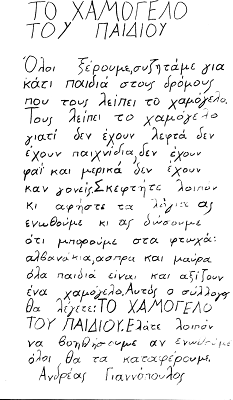 ΤΟ ΧΑΜΟΓΕΛΟ
ΤΟΥ ΠΑΙΔΙΟΥ
Όλοι ξέρουμε,συζητάμε για
κάτι παιδιά στους δρόμους
που τους λείπει το χαμόγελο.
Τους λείπει το χαμόγελο
γιατί δεν έχουν λεφτά δεν
έχουν παιχνίδια,δεν έχουν
φαΐ και μερικά δεν έχουν
καν γονείς.Σκεφτήτε λοιπόν
κι αφήστε τα λόγια ας
ενωθούμε κι ας δώσουμε
ότι μπορούμε στα φτωχά:
αλβανάκια,άσπρα και μαύρα
όλα παιδιά είναι και αξίζουν
ένα χαμόγελο.Αυτός ο σύλλογος
θα λέγετε:ΤΟ ΧΑΜΟΓΕΛΟ
ΤΟΥ ΠΑΙΔΙΟΥ.Ελάτε λοιπόν
να βοηθήσουμε αν ενωθούμε
όλοι θα τα καταφέρουμε.
Ανδρέας Γιαννόπουλος